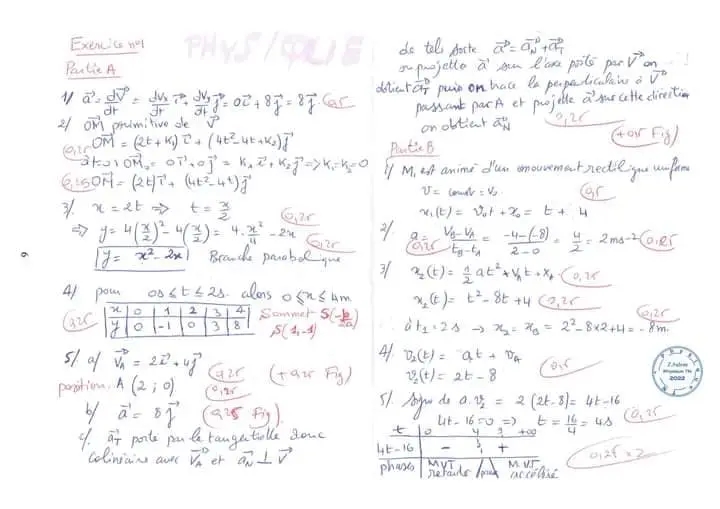 PHYSIQUE
Exercice n°1
Partie A
1/ a⃗ = dV⃗/dt = dVx/dt i⃗ + dVy/dt j⃗ = 0i⃗ + 8j⃗ = 8j⃗. 0,25
2/ OM⃗ primitive de V⃗
0,25 OM⃗ = (2t+K₁)i⃗ + (4t²-4t+K₂)j⃗
à t=0 OM⃗₀ = 0i⃗ + 0j⃗ = K₁i⃗ + K₂j⃗ => K₁=K₂=0
0,25 OM⃗ = (2t)i⃗ + (4t²-4t)j⃗
3/ x = 2t => t = x/2 0,25
=> y = 4(x/2)² - 4(x/2) = 4·x²/4 - 2x 0,25
y = x² - 2x Branche parabolique
4/ pour 0s ≤ t ≤ 2s alors 0 ≤ x ≤ 4m
0,25 x 0 1 2 3 4 Sommet S(-b/2a)
y 0 -1 0 3 8 S(1,-1)
5/ a/ V⃗A = 2i⃗ + 4j⃗ 0,25 (+0,25 Fig)
position. A (2 ; 0) 0,25
b/ a⃗ = 8j⃗ (0,25 Fig).
c/ a⃗T porté par la tangentielle donc
colinéaire avec V⃗A et a⃗N ⊥ V⃗
de tels sorte a⃗ = a⃗N + a⃗T
on projette a⃗ sur l'axe porté par V⃗ on
obtient a⃗T puis on trace la perpendiculaire à V⃗
passant par A et projette a⃗ sur cette direction
on obtient a⃗N 0,25 (+0,25 Fig)
Partie B
1/ M₁ est animé d'un mouvement rectiligne uniforme
v = const = v₀ 0,5
x₁(t) = v₀t + x₀ = t + 4
2/ a = (VB-VA)/(tB-tA) = (-4-(-8))/(2-0) = 4/2 = 2ms⁻² 0,25
0,25
3/ x₂(t) = 1/2 at² + VAt + xA 0,25
x₂(t) = t² - 8t + 4 0,25 0,25
à t₁ = 2s → x₂ = xB = 2² - 8x2 + 4 = -8m.
4/ v₂(t) = at + VA 0,5
v₂(t) = 2t - 8
5/ Signe de a.v₂ = 2(2t-8) = 4t-16
4t-16=0 => t = 16/4 = 4s 0,25
t 0 4 +∞
4t-16 - +
phases MVT retardé MVT accéléré 0,25 x 2
2022